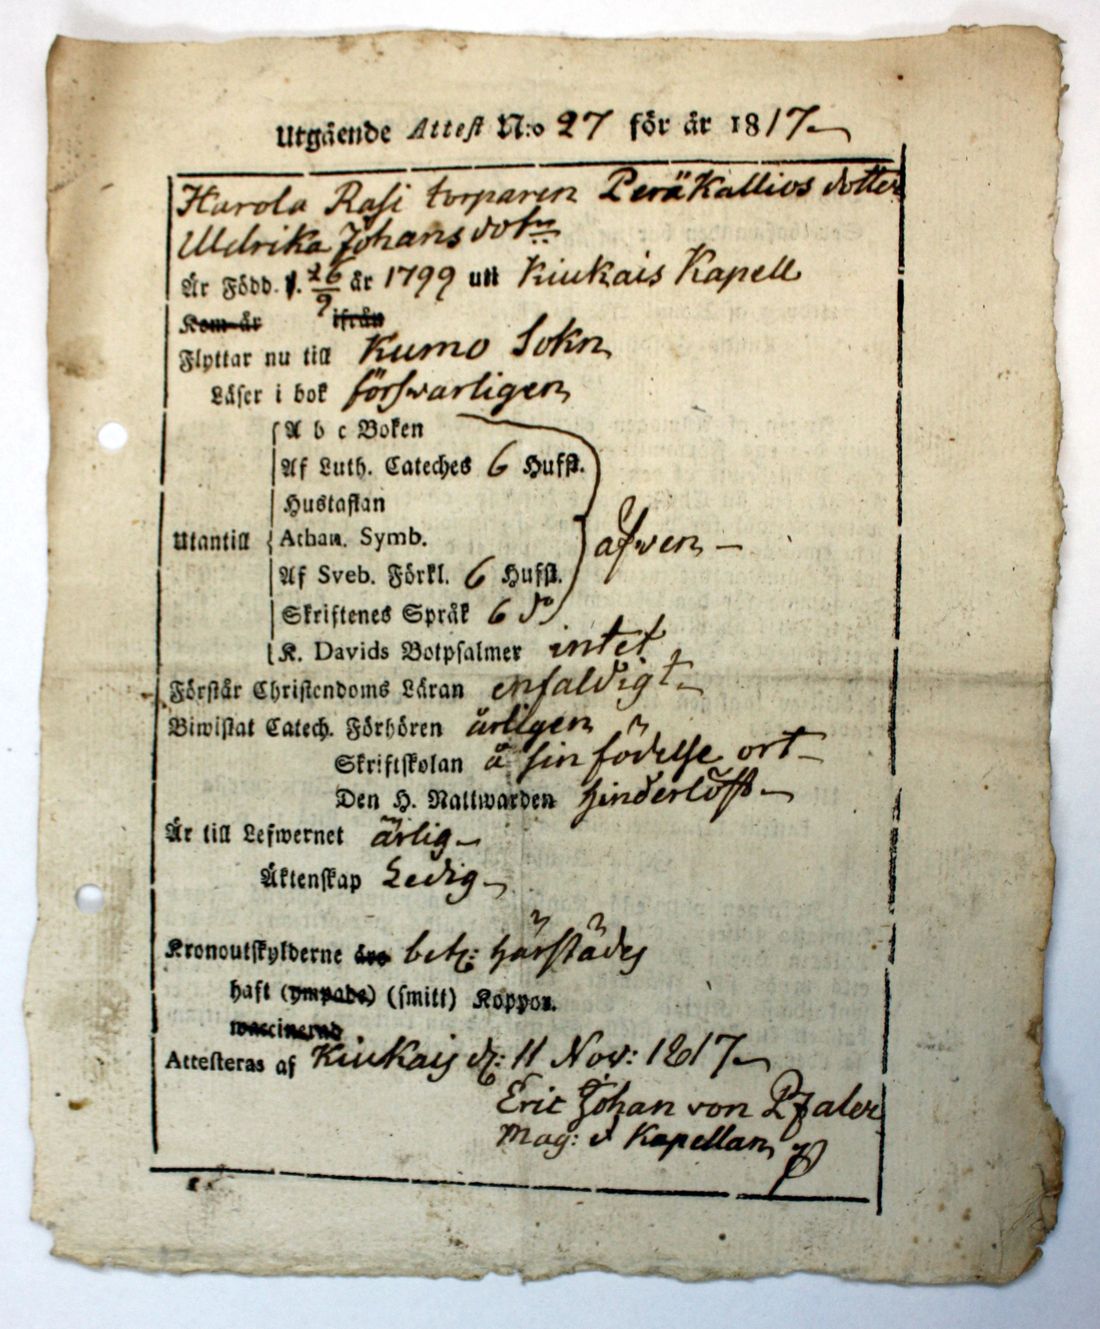 Utgående Attest N:o 27 för år 1817
Harola Rasi torparen Peräkallios dotter
Uldrika Johans dotr
Är Född. d. 26/9 år 1799 utt Kiukais Kapell
Kom år ifrån
Flyttar nu till Kumo Sokn
Läser i bok försvarligen
A b c Boken
Af Luth. Cateches 6 Hufst.
Hustaflan
Utantill Athan. Symb. äfven
Af Sveb. Förkl. 6 Hufst.
Skriftenes Språk 6 do
K. Davids Botpsalmer intet
Förstår Christendoms Läran enfaldigt
Biwistat Catech. Förhören årligen
Skriftskolan å sin födelse ort
Den H. Nattwarden hinderlöst
Är till Lefwernet ärlig
Äktenskap Ledig
Kronoutskylderne äro bet: härstädes
haft (ympade) (smitt) Koppor.
waccinerad
Attesteras af Kiukais d: 11 Nov: 1817
Eric Johan von Pfaler
Mag: d Kapellan